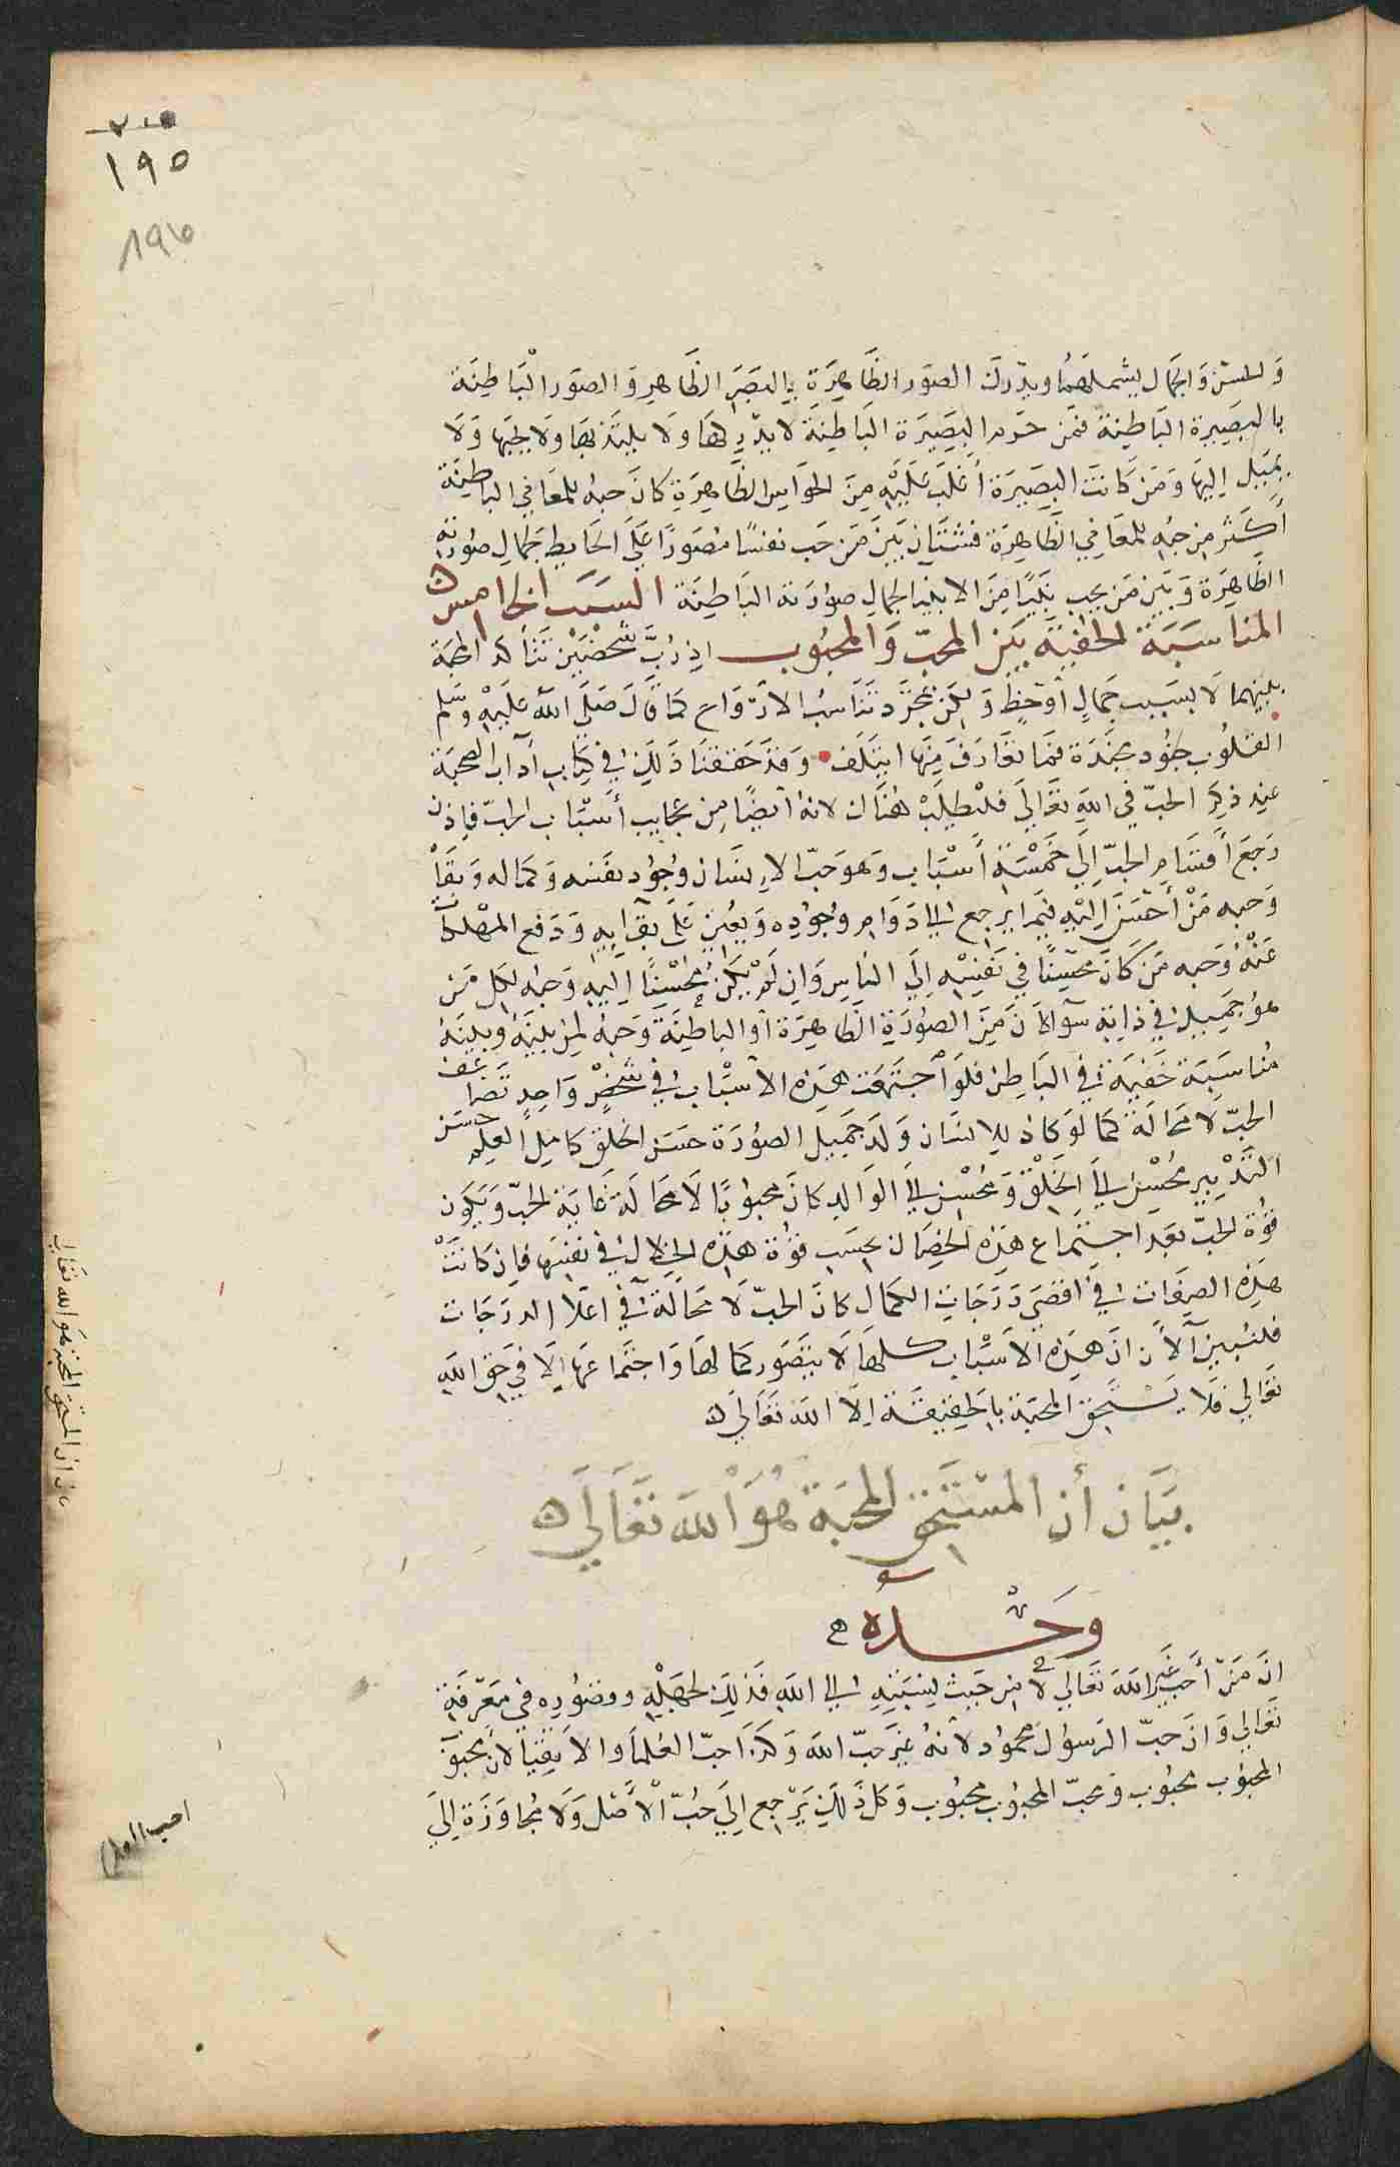 ٢٠٥
١٩٥
١٩٥
والحسن والجمال يشملهما ويدرك الصور الظاهرة بالبصر الظاهر والصور الباطنة
بالبصيرة الباطنة فمن حرم البصيرة الباطنة لا يدركها ولا يلتذ بها ولا يحبها ولا
يميل اليها ومن كانت البصيرة أغلب عليه من الحواس الظاهرة كان حبه للمعاني الباطنة
أكثر من حبه للمعاني الظاهرة فشتان بين من حب نفسا مصورا على الحايط لجمال صورته
الظاهرة وبين من يحب نبيا من الانبيا لجمال صورته الباطنة السبب الخامس
المناسبة الخفية بين المحب والمحبوب اذ رب شخصين تتأكد المحبة
بينهما لا بسبب جمال أو حظ ولكن بمجرد تناسب الارواح كما قال صلى الله عليه وسلم
القلوب جنود مجندة فما تعارف منها ايتلف وقد حققنا ذلك في كتاب آداب الصحبة
عند ذكر الحب في الله تعالى فليطلب هناك لانه أيضا من عجايب أسباب الحب فاذن
رجع أقسام الحب الى خمسة أسباب وهو حب الانسان وجود نفسه وكماله وبقاه
وحبه من أحسن اليه فيما يرجع الى دوام وجوده ويعين على بقايه ودفع المهلكات
عنه وحبه من كان محسنا في نفسه الى الناس وان لم يكن محسنا اليه وحبه لكل من
هو جميل في ذاته سوآ كان من الصورة الظاهرة أو الباطنة وحبه لمن بينه وبينه
مناسبة خفية في الباطن فلو اجتمعت هذه الاسباب في شخص واحد تضاعف
الحب لا محالة كما لو كان للانسان ولد جميل الصورة حسن الخلق كامل العلم حسن
التدبير محسن الى الخلق ومحسن الى الوالد كان محبوبا لا محالة غاية الحب ويكون
قوة الحب بعد اجتماع هذه الخصال بحسب قوة هذه الخلال في نفسها فان كانت
هذه الصفات في أقصى درجات الكمال كان الحب لا محالة في اعلا الدرجات
فلنبين الآن ان هذه الاسباب كلها لا يتصور كمالها واجتماعها الا في حق الله
تعالى فلا يستحق المحبة بالحقيقة الا الله تعالى
بيان أن المستحق المحبة هو الله تعالى
وحده
ان من أحب غير الله تعالى لا من حيث نسبته الى الله فذلك لجهله وقصوره في معرفة
تعالى وان حب الرسول محمود لانه غير حب الله وكذا حب العلما والاتقيا لان محبوب
المحبوب محبوب ومحب المحبوب محبوب وكل ذلك يرجع الى حب الأصل ولا مجاوزة الى
بيان ان المستحق المحبة هو الله تعالى